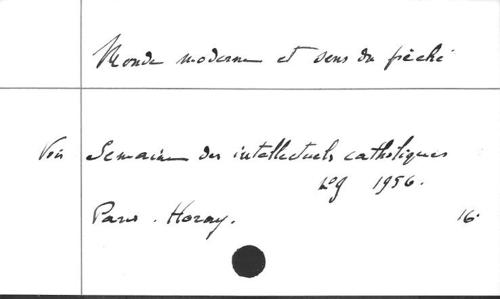 Monde moderne et sens du péché
Voir Semaine des intellectuels catholiques
1956.
Paris. Horay. 16.